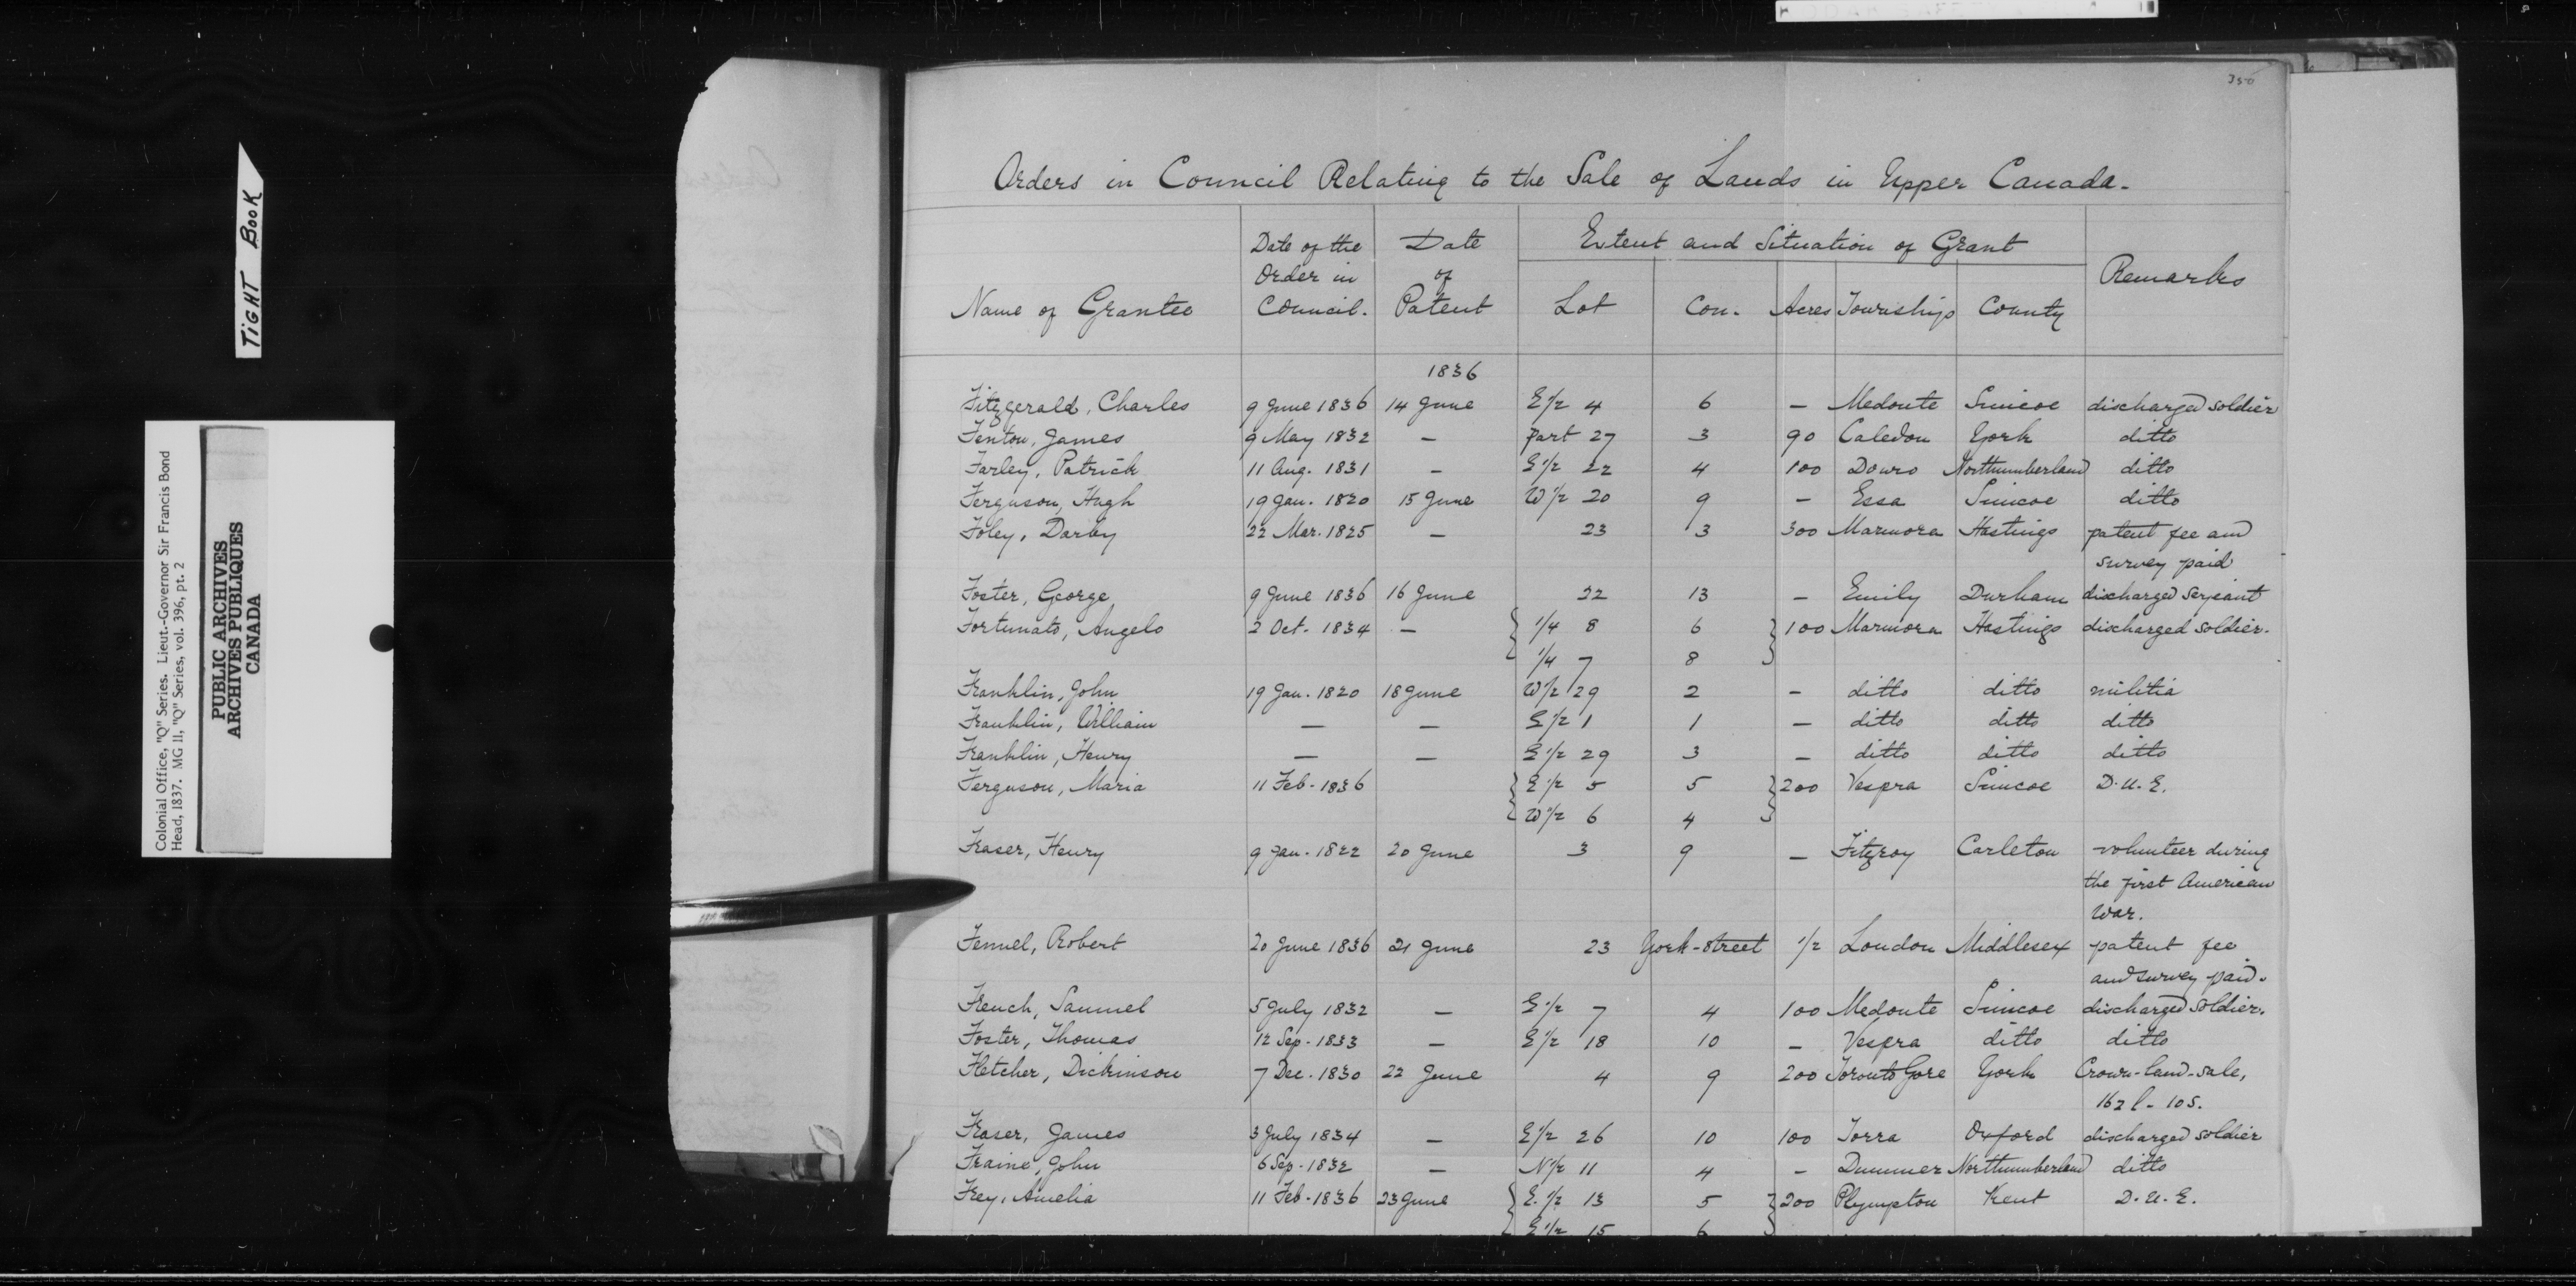 TIGHT BOOK
Colonial Office, "Q" Series. Lieut.-Governor Sir Francis Bond
Head, 1837. MG 11, "Q" Series, vol. 396, pt. 2
PUBLIC ARCHIVES
ARCHIVES PUBLIQUES
CANADA
350
Orders in Council Relating to the Sale of Lands in Upper Canada.
Name of Grantee Date of the Order in Council. Date of Patent Extent and Situation of Grant Remarks
Lot Con. Acres Townships County
1836
Fitzgerald, Charles 9 June 1836 14 June E 1/2 4 6 — Medonte Simcoe discharged soldier
Fenton, James 9 May 1832 — part 27 3 90 Caledon York ditto
Farley, Patrick 11 Aug. 1831 — E 1/2 22 4 100 Douro Northumberland ditto
Ferguson, Hugh 19 Jan. 1820 15 June W 1/2 20 9 — Essa Simcoe ditto
Foley, Darby 22 Mar. 1825 — 23 3 300 Marmora Hastings patent fee and
survey paid
Foster, George 9 June 1836 16 June 22 13 — Emily Durham discharged serjeant
Fortunato, Angelo 2 Oct. 1834 — 1/4 8 6 100 Marmora Hastings discharged soldier.
1/4 7 8
Franklin, John 19 Jan. 1820 18 June W 1/2 29 2 — ditto ditto militia
Franklin, William — — E 1/2 1 1 — ditto ditto ditto
Franklin, Henry — — E 1/2 29 3 — ditto ditto ditto
Ferguson, Maria 11 Feb. 1836 E 1/2 5 5 200 Vespra Simcoe D.U.E.
W 1/2 6 4
Fraser, Henry 9 Jan. 1822 20 June 3 9 — Fitzroy Carleton volunteer during
the first American
war.
Fennel, Robert 20 June 1836 21 June 23 York-street 1/2 London Middlesex patent fee
and survey paid.
French, Samuel 5 July 1832 — E 1/2 7 4 100 Medonte Simcoe discharged soldier.
Foster, Thomas 12 Sep. 1833 — E 1/2 18 10 — Vespra ditto ditto
Fletcher, Dickinson 7 Dec. 1830 22 June 4 9 200 Toronto Gore York Crown-land-sale,
162 l. 10 s.
Fraser, James 3 July 1834 — E 1/2 26 10 100 Zorra Oxford discharged soldier
Fraine, John 6 Sep. 1832 — N 1/2 11 4 — Dummer Northumberland ditto
Frey, Amelia 11 Feb. 1836 23 June E. 1/2 13 5 200 Plympton Kent D.U.E.
E 1/2 15 6